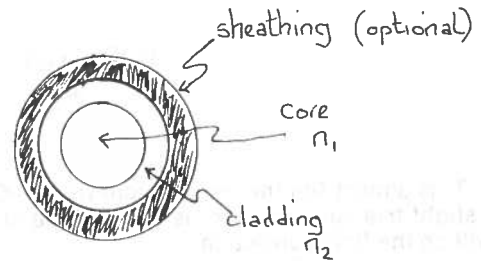 sheathing (optional)
core
n₁
cladding
n₂